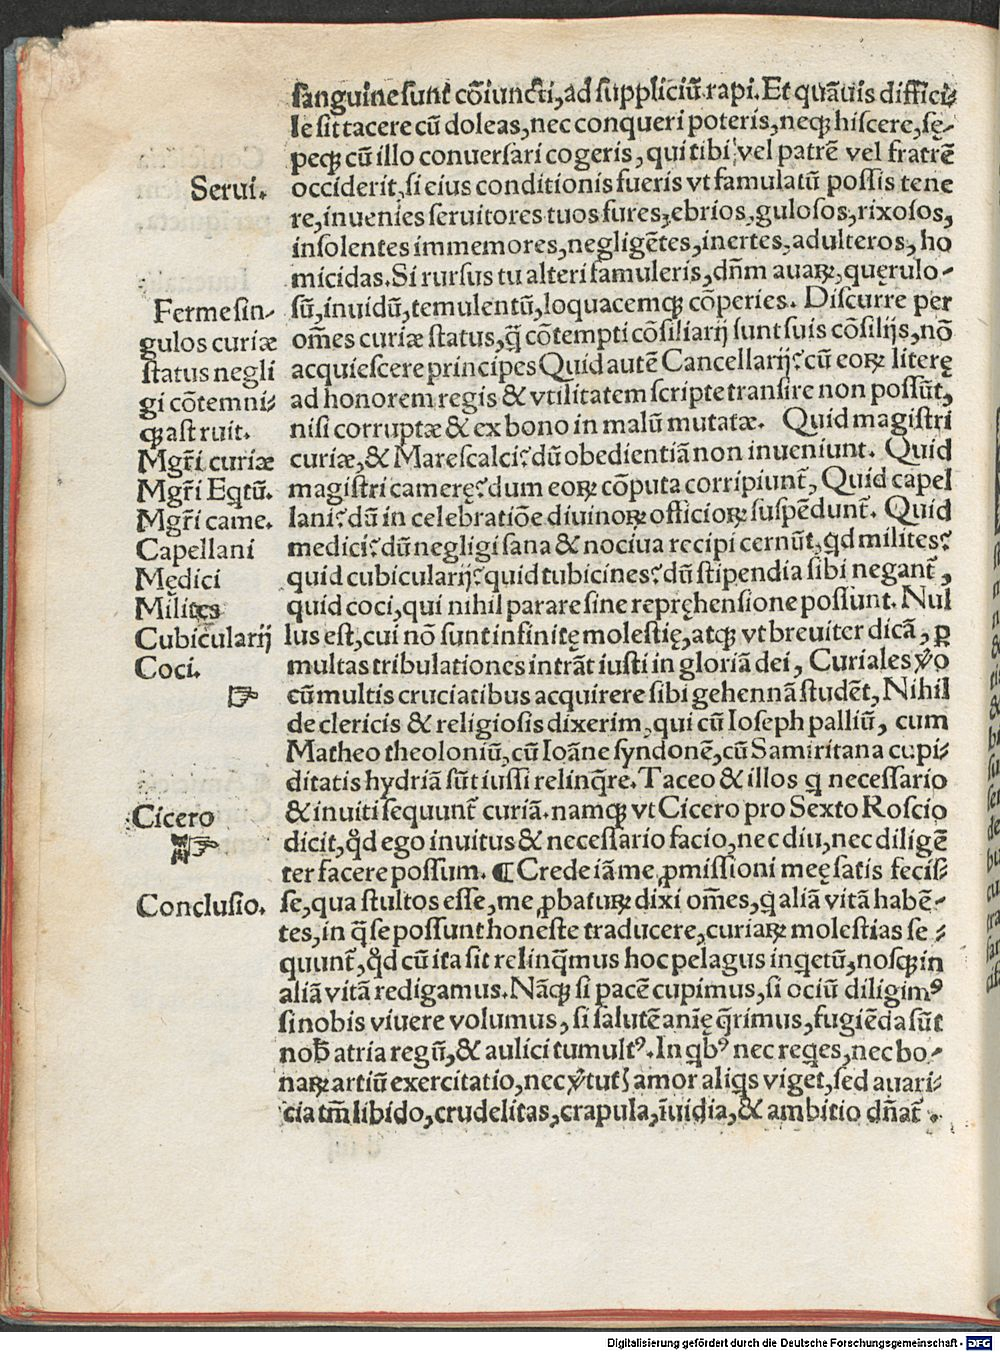 sanguine sunt cõiuncti, ad suppliciũ rapi. Et quãuis diffici⸗
le sit tacere cũ doleas, nec conqueri poteris, neqꝫ hiscere, sę⸗
peqꝫ cũ illo conuersari cogeris, qui tibi vel patrẽ vel fratrẽ
Serui. occiderit, si eius conditionis fueris vt famulatũ possis tene
re, inuenies seruitores tuos fures, ebrios, gulosos, rixosos,
insolentes immemores, negligẽtes, inertes, adulteros, ho
micidas. Si rursus tu alteri famuleris, dñm auaꝝ, quęrulo⸗
Ferme sin⸗ sũ, inuidũ, temulentũ, loquacemqꝫ cõperies. Discurre per
gulos curiæ om̃es curiæ status, q̃ cõtempti cõsiliarij sunt suis cõsilijs, nõ
status negli acquiescere principes Quid autẽ Cancellarij? cũ eoꝝ literę
gi cõtemni⸗ ad honorem regis & vtilitatem scripte transire non possũt,
qꝫ astruit. nisi corruptæ & ex bono in malũ mutatæ. Quid magistri
Mgr̃i curiæ curiæ, & Marescalci? dũ obedientiã non inueniunt. Quid
Mgr̃i Eqtũ. magistri camerę? dum eoꝝ cõputa corripiunt̃, Quid capel
Mgr̃i came. lani? dũ in celebratiõe diuinoꝝ officioꝝ suspẽdunt̃. Quid
Capellani medici? dũ negligi sana & nociua recipi cernũt, qd milites?
Mędici quid cubicularij? quid tubicines? dũ stipendia sibi negant̃,
Milites quid coci, qui nihil parare sine repręhensione possunt. Nul
Cubicularij lus est, cui nõ sunt infinitę molestię, atqꝫ vt breuiter dicã, ꝑ
Coci. multas tribulationes intrãt iusti in gloriã dei, Curiales ṽo
☞ cũ multis cruciatibus acquirere sibi gehennã studẽt, Nihil
de clericis & religiosis dixerim, qui cũ Ioseph palliũ, cum
Matheo theoloniũ, cũ Ioãne syndonẽ, cũ Samiritana cupi⸗
ditatis hydriã sũt iussi relinq̃re. Taceo & illos q necessario
Cicero & inuiti sequunt̃ curiã. namqꝫ vt Cicero pro Sexto Roscio
☞ dicit, qd ego inuitus & necessario facio, nec diu, nec diligẽ
ter facere possum. ¶ Crede iã me ꝓmissioni meę satis fecis⸗
Conclusio. se, qua stultos esse, me ꝓbatuꝝ dixi om̃es, q aliã vitã habẽ⸗
tes, in q̃ se possunt honeste traducere, curiaꝝ molestias se⸗
quunt̃, qd cũ ita sit relinq̃mus hoc pelagus inqetũ, nosqꝫ in
aliã vitã redigamus. Nãqꝫ si pacẽ cupimus, si ociũ diligimꝰ
si nobis viuere volumus, si salutẽ anię q̃rimus, fugiẽda sũt
nob̃ atria regũ, & aulici tumultꝰ. In qbꝰ nec reqes, nec bo⸗
naꝝ artiũ exercitatio, nec ṽtutꝭ amor aliqs viget, sed auari⸗
cia tm̃ libido, crudelitas, crapula, ĩuidia, & ambitio dñat̃.
Digitalisierung gefördert durch die Deutsche Forschungsgemeinschaft - DFG